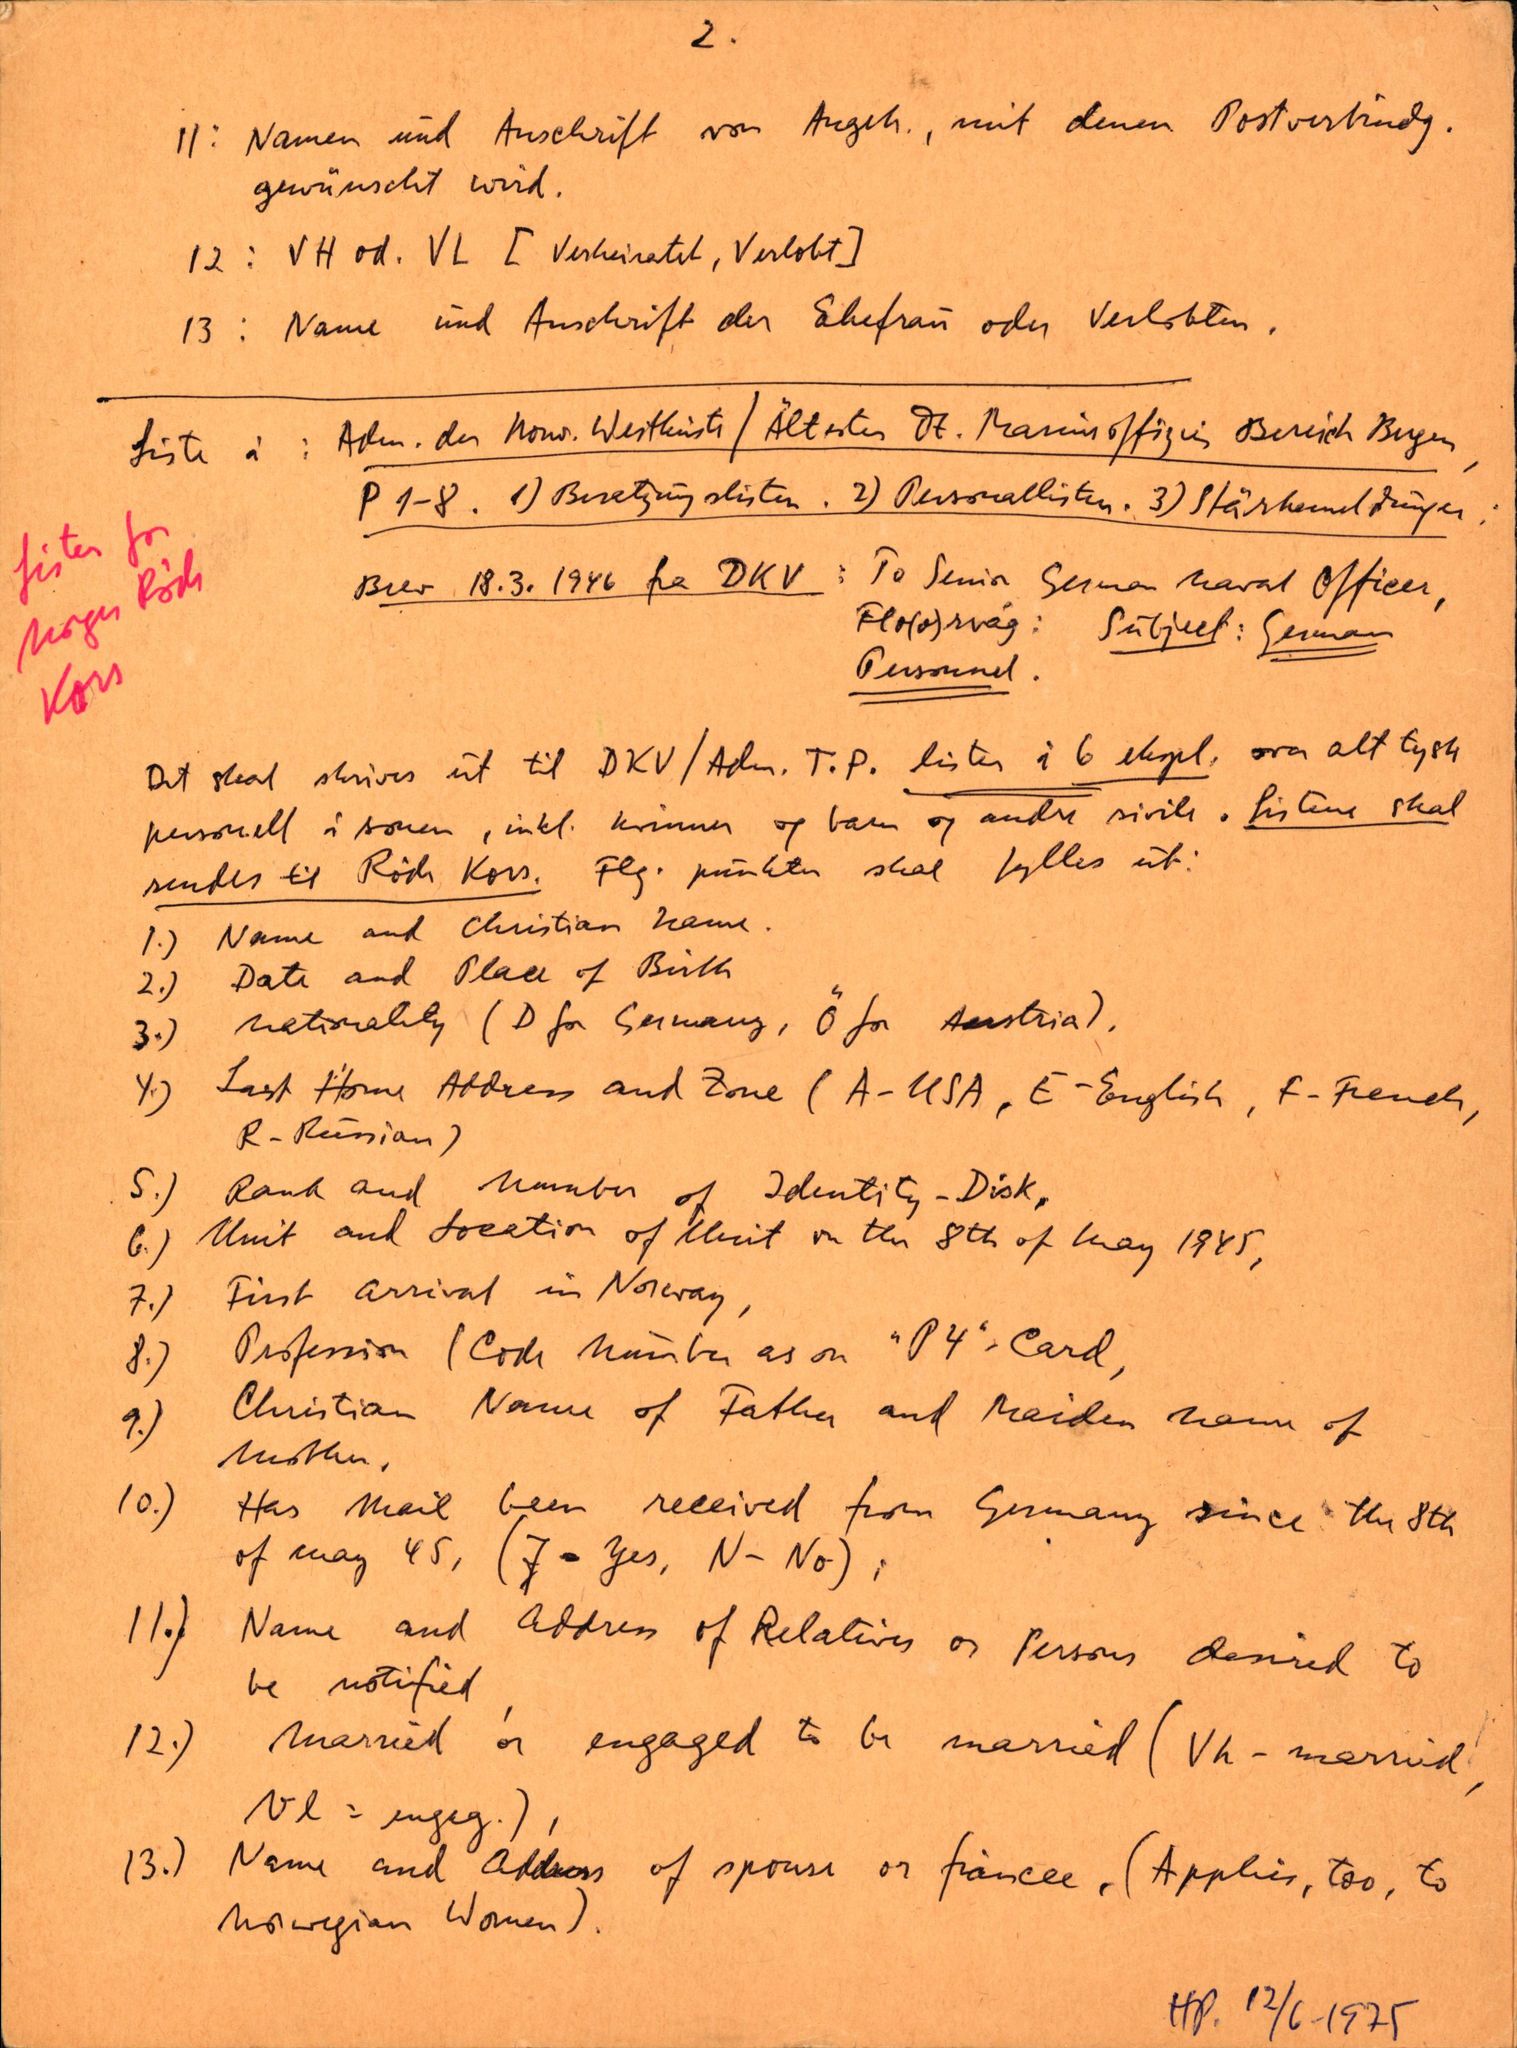 2.
11: Namen und Anschrift von Angeh., mit denen Postverbindg.
gewünscht wird.
12: VH od. VL [Verheiratet, Verlobt]
13: Name und Anschrift der Ehefrau oder Verlobten.
Liste i: Adm. der Norw. Westküste / Ältester Dt. Marineoffizier Bereich Bergen,
P 1-8. 1) Besatzungslisten. 2) Personallisten. 3) Stärkemeldungen:
Brev 18.3.1946 fra DKV: To Senior German Naval Officer,
Flo(o)rvåg: Subject: German
Personnel.
Lister for
Norges Röde
Kors
Det skal skrives ut til DKV/Adm. T.P. lister i 6 ekspl. over alt tysk
personell i sonen, inkl. kvinner og barn og andre sivile. Listene skal
sendes til Röde Kors. Flg. punkter skal fylles ut:
1.) Name and Christian Name.
2.) Date and Place of Birth
3.) Nationality (D for Germany, Ö for Austria).
4.) Last Home Address and Zone (A-USA, E-English, F-French,
R-Russian)
5.) Rank and Number of Identity-Disk,
6.) Unit and Location of Unit on the 8th of May 1945,
7.) First arrival in Norway,
8.) Profession (Code Number as on "P4"-Card,
9.) Christian Name of Father and Maiden Name of
Mother,
10.) Has Mail been received from Germany since the 8th
of May 45, (J - Yes, N - No),
11.) Name and Address of Relatives or Persons desired to
be notified,
12.) Married or engaged to be married (Vh - married,
Vl = engag.),
13.) Name and Address of spouse or fiancee, (Applies, too, to
Norwegian Women).
HP. 12/6-1975